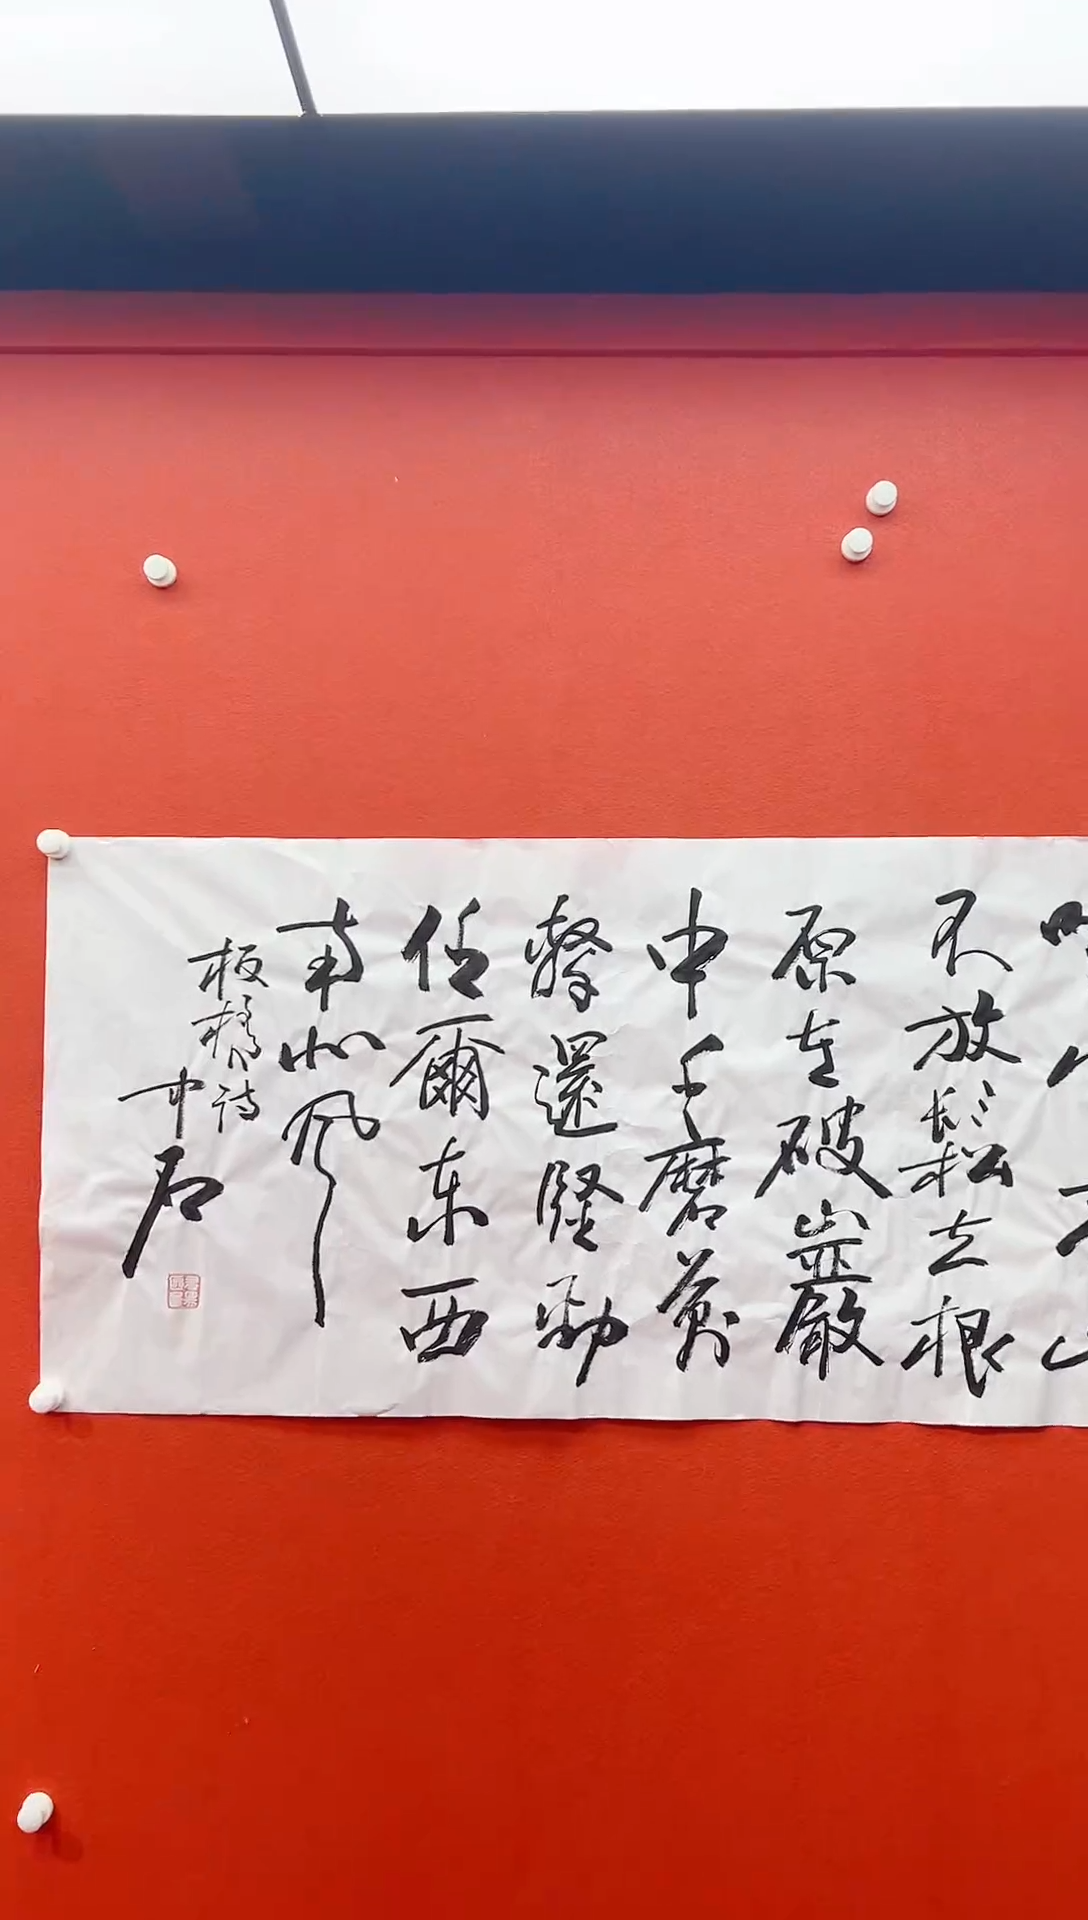 不放鬆立根
原在破巖
中千磨萬
擊還堅勁
任爾东西
南北风
板橋诗
中石